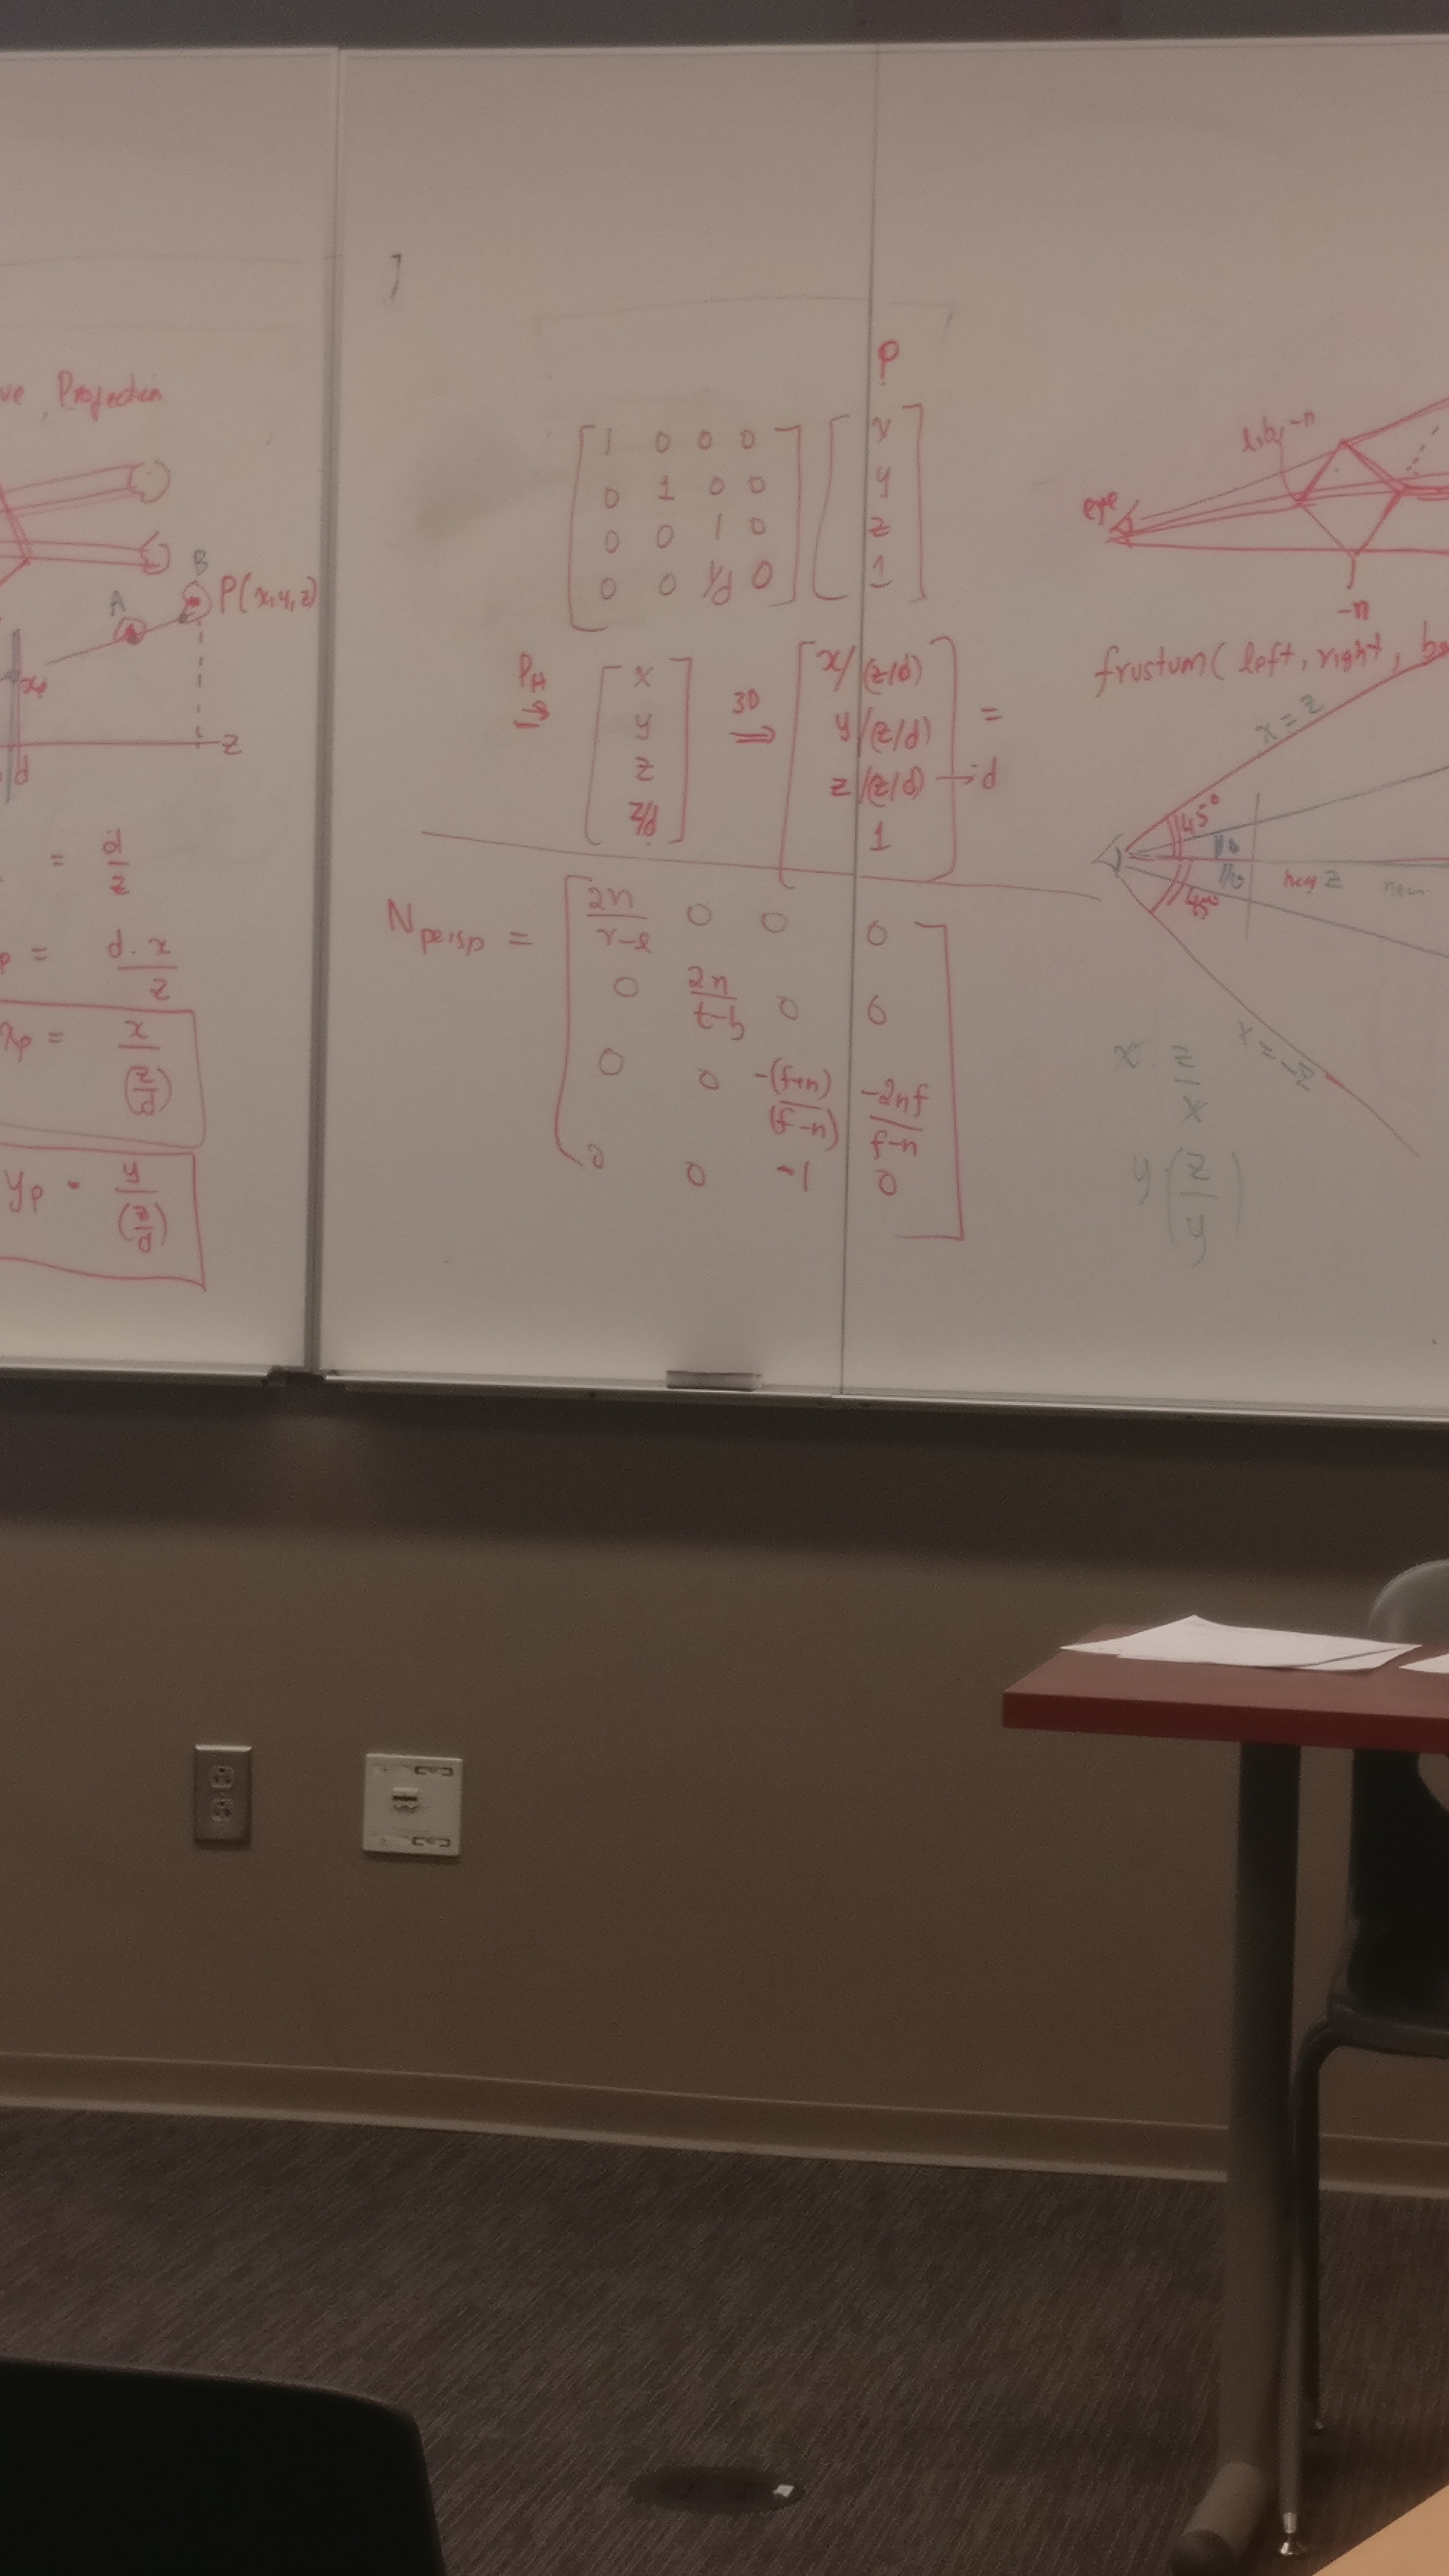 ve Projection
B
A
P(x,y,z)
xp
z
d
= d/z
p = d.x/z
xp = x/(z/d)
yp = y/(z/d)
P
[1 0 0 0] [x]
[0 1 0 0] [y]
[0 0 1 0] [z]
[0 0 1/d 0] [1]
PH ⇒ [x] 3D ⇒ [x/(z/d)] =
[y] [y/(z/d)]
[z] [z/(z/d)] → d
[z/d] [1]
Npersp = [2n/r-l 0 0 0]
[0 2n/t-b 0 0]
[0 0 -(f+n)/(f-n) -2nf/f-n]
[0 0 -1 0]
l,b,-n
eye
-n
frustum( left, right,
x = z
45°
45°
neg z
x = -z
x z/x
y (z/y)